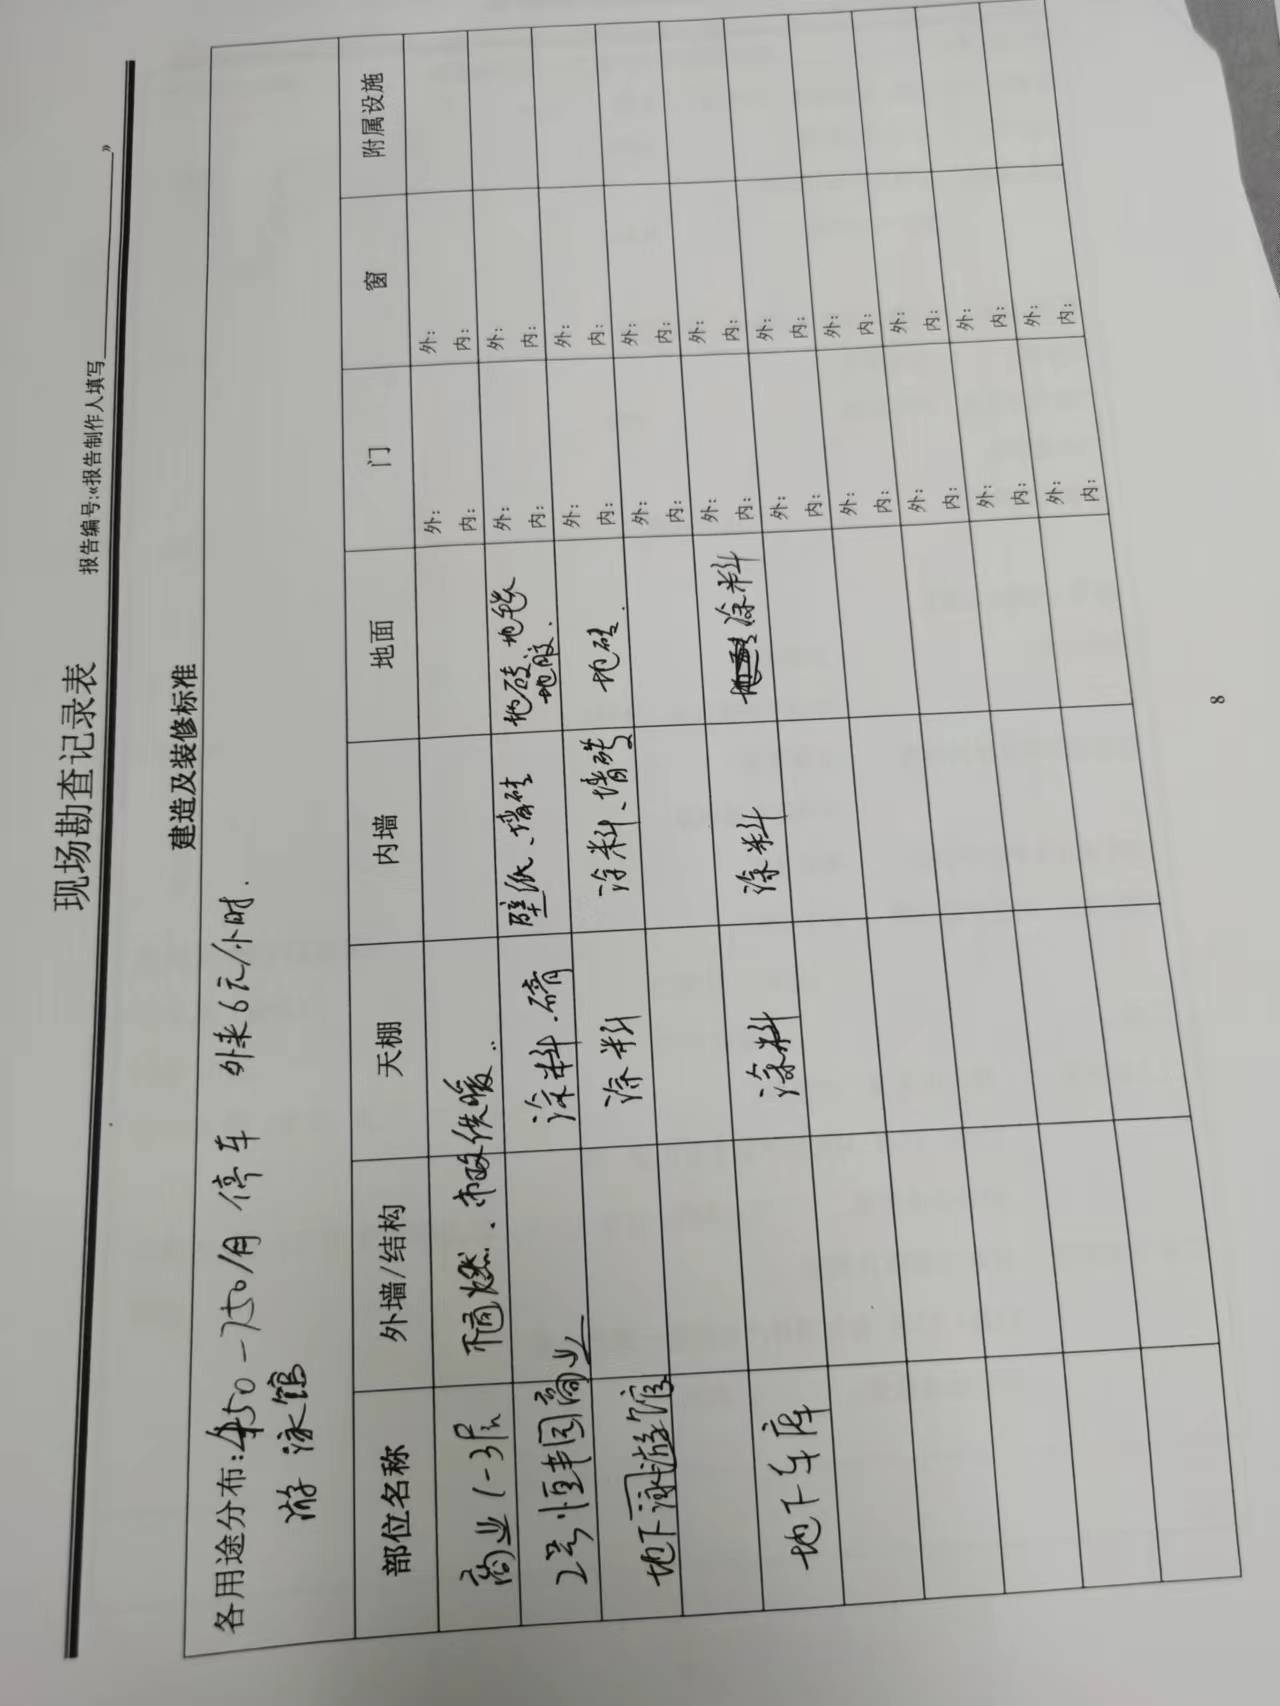 现场勘查记录表
报告编号:«报告制作人填写 »
建造及装修标准
各用途分布:450-750/月 停车 外来6元/小时.
游泳馆
部位名称 外墙/结构 天棚 内墙 地面 门 窗 附属设施
商业1-3层 市政供暖.. 外: 内: 外: 内:
2号恒丰园商业 涂料. 壁纸、墙砖 地砖、地毯、地胶. 外: 内: 外: 内:
地下游馆 涂料 涂料、墙砖 地砖. 外: 内: 外: 内:
外: 内: 外: 内:
地下车库 涂料 涂料 涂料 外: 内: 外: 内:
外: 内: 外: 内:
外: 内: 外: 内:
外: 内: 外: 内:
外: 内: 外: 内:
外: 内: 外: 内:
8